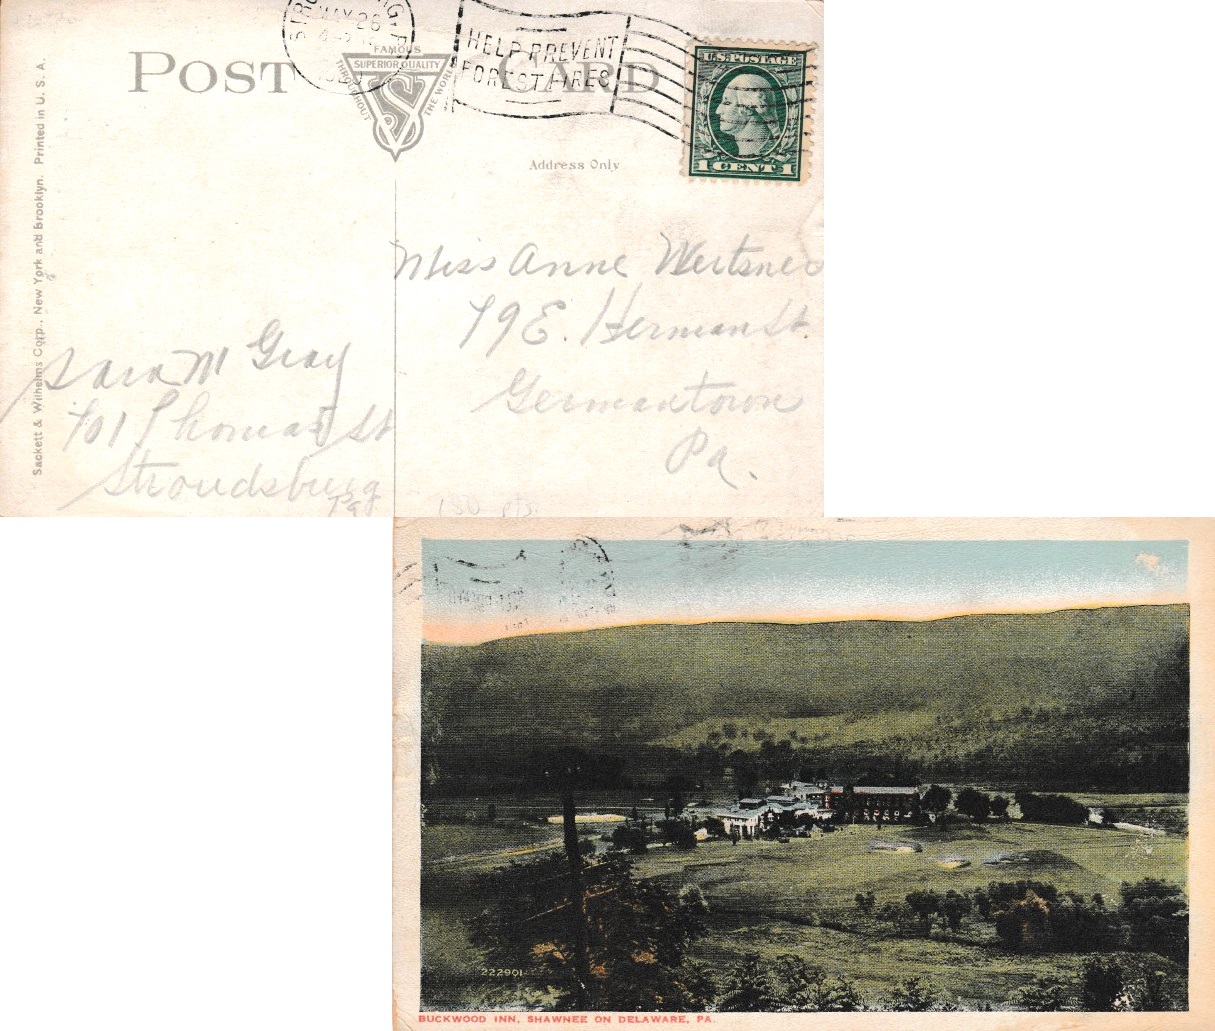 POST CARD
FAMOUS
SUPERIOR QUALITY
THROUGHOUT THE WORLD
MAY 26
HELP PREVENT
FOREST FIRES
U.S. POSTAGE
1 CENT 1
Address Only
Sackett & Wilhelms Corp., New York and Brooklyn. Printed in U. S. A.
Miss Anne Weitsner
79 E. Herman St.
Germantown
Pa.
Sara M Gray
701 Thomas St
Stroudsburg
Pa
150 pts.
222901
BUCKWOOD INN, SHAWNEE ON DELAWARE, PA.